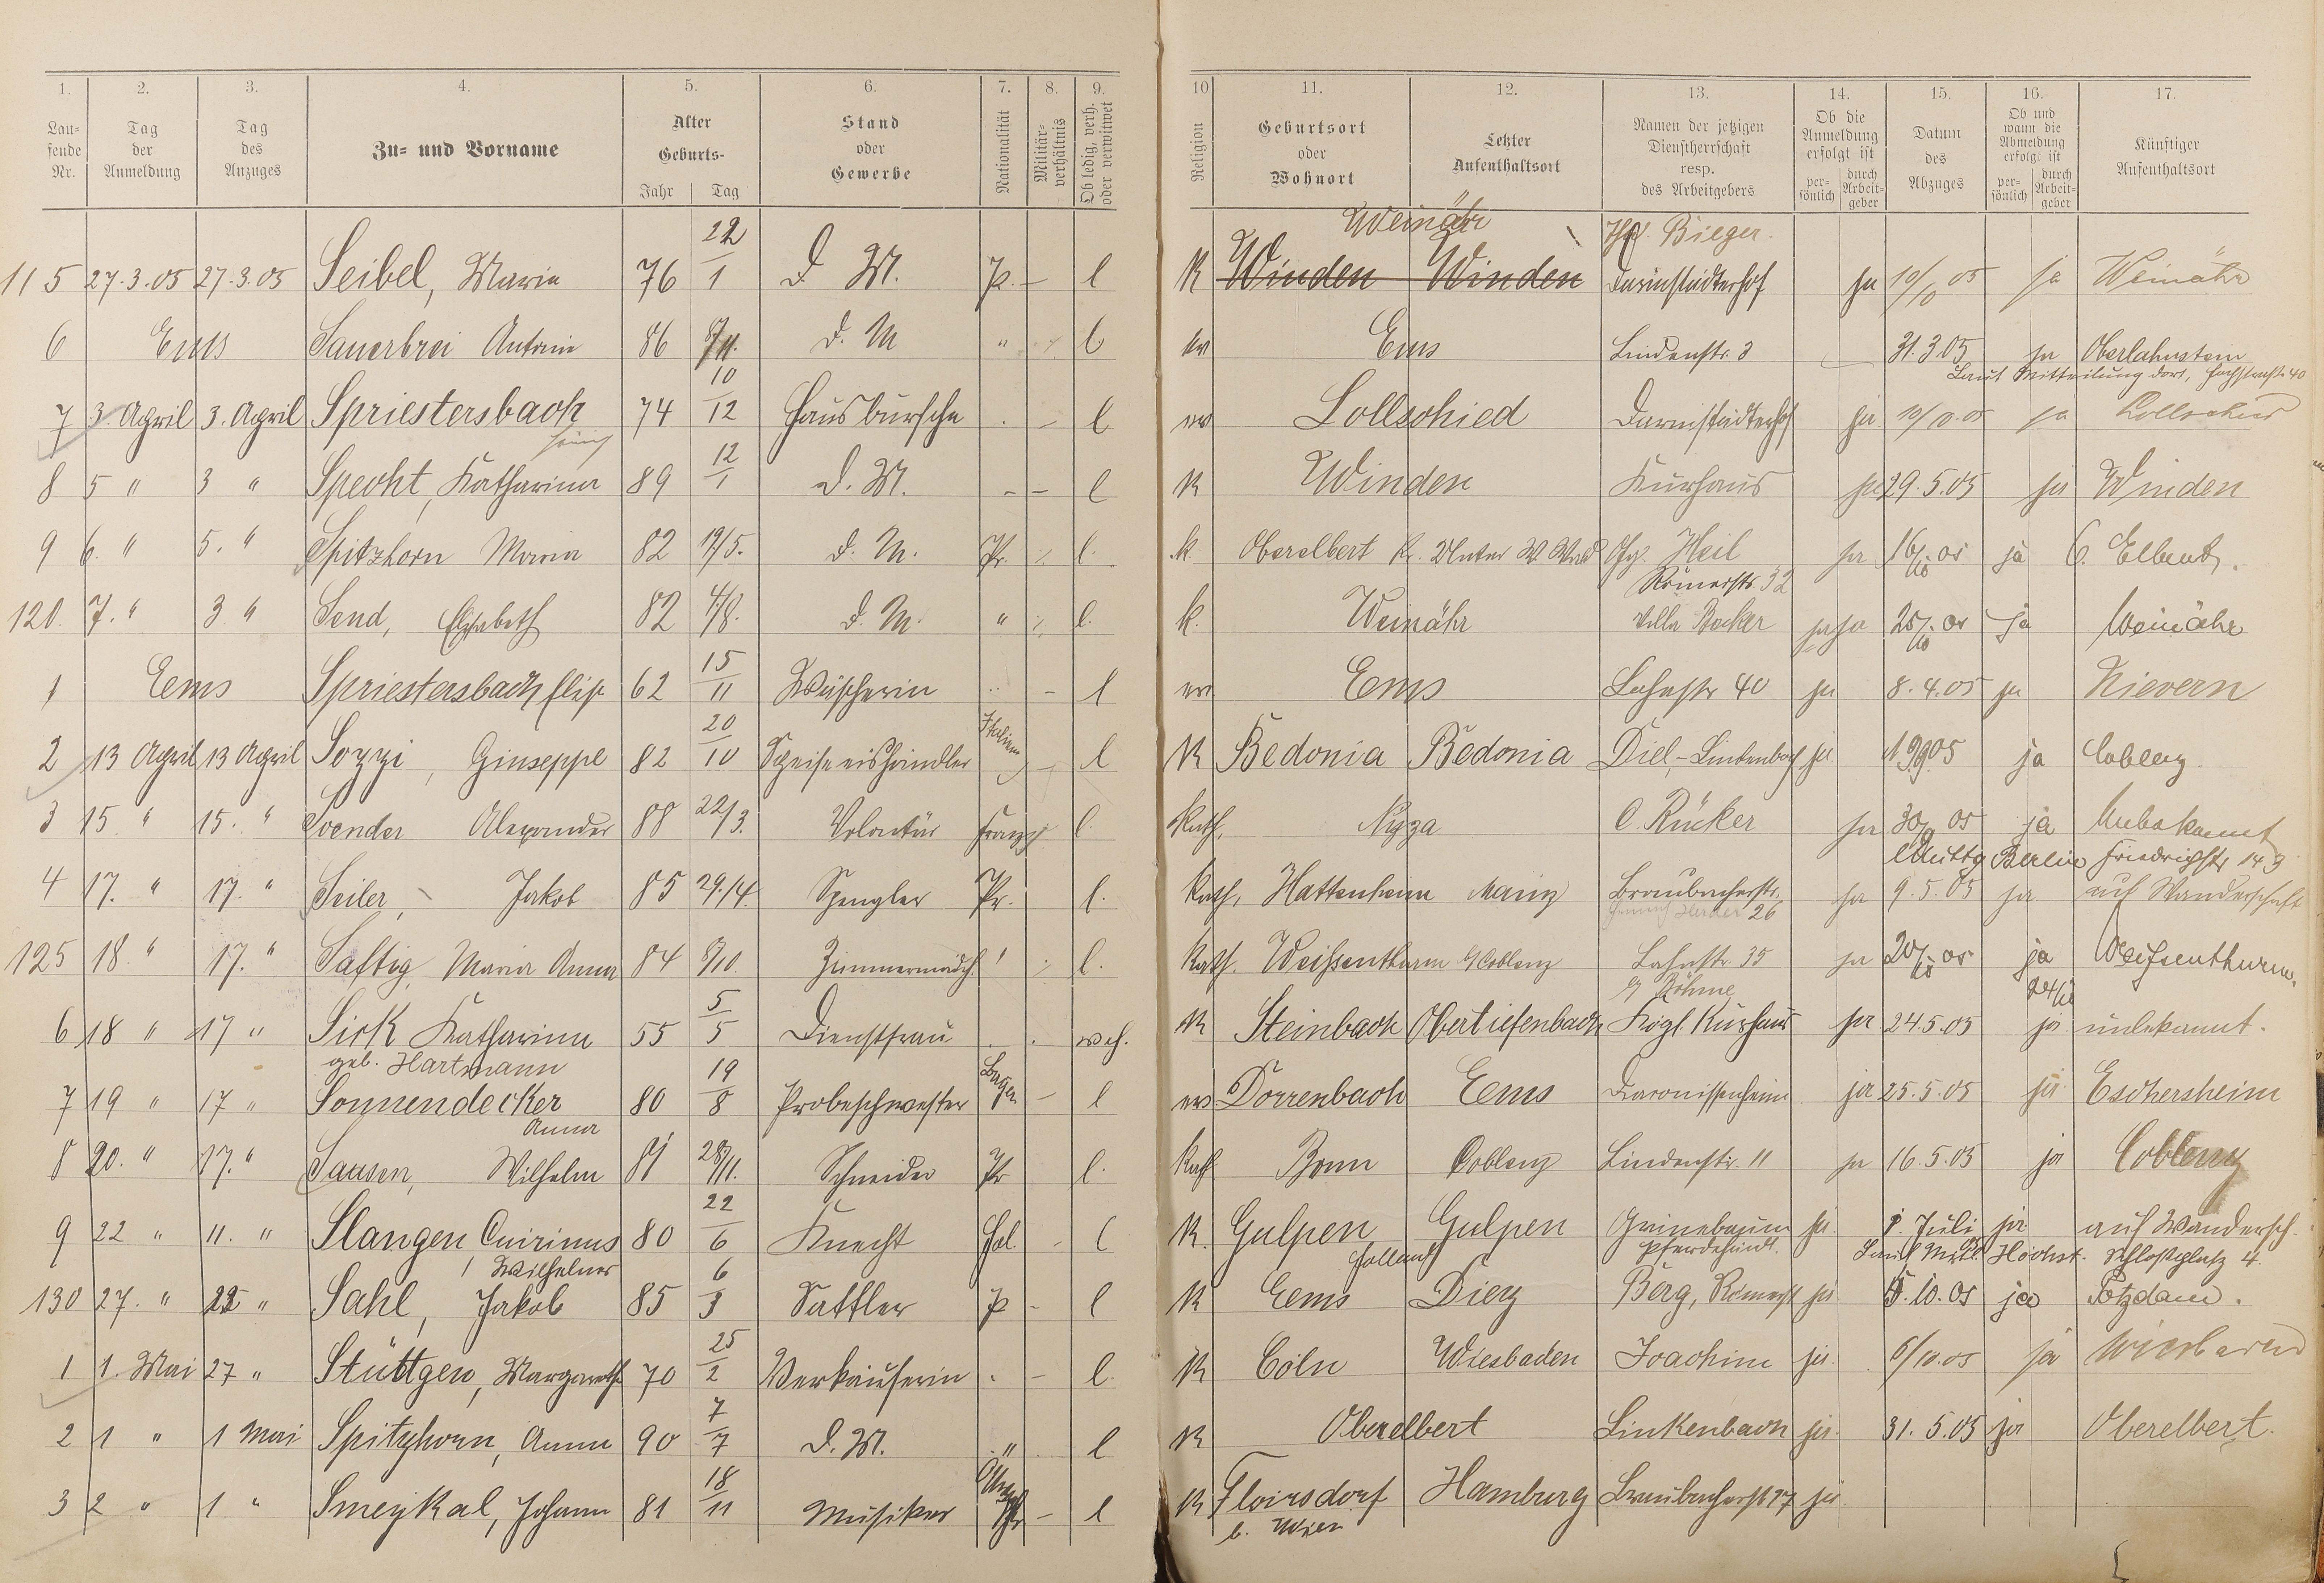 1. 2. 3. 4. 5. 6. 7. 8. 9. 10 11. 12. 13. 14. 15. 16. 17.
Lau-
fende
Nr.
Tag
der
Anmeldung
Tag
des
Anzuges
Zu- und Vorname
Alter
Geburts-
Jahr Tag
Stand
oder
Gewerbe
Nationalität
Militär-
verhältnis
Ob ledig, verh.
oder verwitwet
Religion
Geburtsort
oder
Wohnort
Letzter
Aufenthaltsort
Namen der jetzigen
Dienstherrschaft
resp.
des Arbeitgebers
Ob die
Anmeldung
erfolgt ist
per-
sönlich
durch
Arbeit-
geber
Datum
des
Abzuges
Ob und
wann die
Abmeldung
erfolgt ist
per-
sönlich
durch
Arbeit-
geber
Künftiger
Aufenthaltsort
Weinähr Bieger.
115 27.3.05 27.3.05 Seibel, Maria 76 22/1 D. M. P. – l K Winden Winden Darmstädterhof ja 10/10 05 ja Weinähr
6 Ems Sauerbrei Antonie 86 D. M " l ev Ems Lindenstr. 3 31.3.05 ja Oberlahnstein
Laut Mitteilung dort, Hochstraße 40
7 3. April 3. April Spriestersbach 74 10/12 Hausbursche – l ev Lollschied Darmstädterhof ja 10/10.05 ja Lollschied
8 5 " 3 " Specht, Katharina 89 12/1 D. M. – – l K Winden Kurhaus ja 29.5.05 ja Winden
9 6. " 5. " Spitzhorn Maria 82 19/5. D. M. Pr. l. k. Oberelbert Kr. Unter W. Wald Heil ja 16/10 05 ja O. Elbert.
Römerstr. 32
120. 7. " 3. " Send, Elisabeth 82 4/8. D. M. " l. k. Weinähr Villa Becker ja ja 25/10 05 ja Weinähr
1 Ems Spriestersbach Elise 62 15/11 Wäscherin – l ev Ems Lahnstr 40 ja 8.4.05 ja Nievern
2 13 April 13 April Sozzi, Giuseppe 82 20/10 Speiseeishändler Italien – l K Bedonia Bedonia Diel, Lindenbach ja 19/9 05 ja Coblenz
3 15 " 15. " Svender Alexander 88 22/3. Volontär Franz l. Kath. Nizza C. Rücker ja 30/9 05 ja Unbekannt
Berlin Friedrichstr 149
4 17. " 17. " Seiler, Jakob 85 29./4. Spengler Pr. l. Kath. Hattenheim Mainz Braubacherstr. ja 9.5.05 ja auf Wanderschaft
26
125 18. " 17. " Saftig, Maria Anna 84 8/10. Zimmermädch. " l. Kath. Weißenthurm b/Coblenz Lahnstr. 35 ja 20/10 05 ja Weißenthurm.
b/ Böhme
6 18 " 17 " Sick Katharina 55 5/5 Dienstfrau K Steinbach Obertiefenbach Kögl. Kurhaus ja 24.5.05 ja unbekannt.
geb. Hartmann
7 19 " 17 " Sonnendecker 80 19/8 Probeschwester Bayern – l ev Dörrenbach Ems Diaconissenheim ja 25.5.05 ja Eschersheim
Anna
8 20. " 17. " Sausen, Wilhelm 81 28/11. Schneider Pr l. Kath Bonn Coblenz Lindenstr. 11 ja 16.5.05 ja Coblenz
9 22 " 11. " Slangen Quirinus 80 22/6 Knecht Hol. l K. Gulpen Gulpen Grünebaum ja 1. Juli ja auf Wandersch.
Wilhelmus Holland Pferdehändl. Laut Mitt. Höchst. Schloßplatz 4.
130 27. " 22 " Sahl, Jakob 85 6/3 Sattler P – l K Ems Diez Berg, Römerstr ja 15.10.05 ja Potzdam.
1 1. Mai 27 " Stüttgen, Margareth. 70 25/2 Verkäuferin – l. K Cöln Wiesbaden Joachim ja 6/10.05 ja Wiesbaden
2 1 " 1 Mai Spitzhorn, Anna 90 7/7 D. M. " l K Oberelbert Linkenbach ja. 31.5.05 ja Oberelbert.
3 2 " 1 " Smejkal, Johann 81 18/11 Musiker – l K Floirsdorf Hamburg Braubacherstr 17 ja
b. Wien